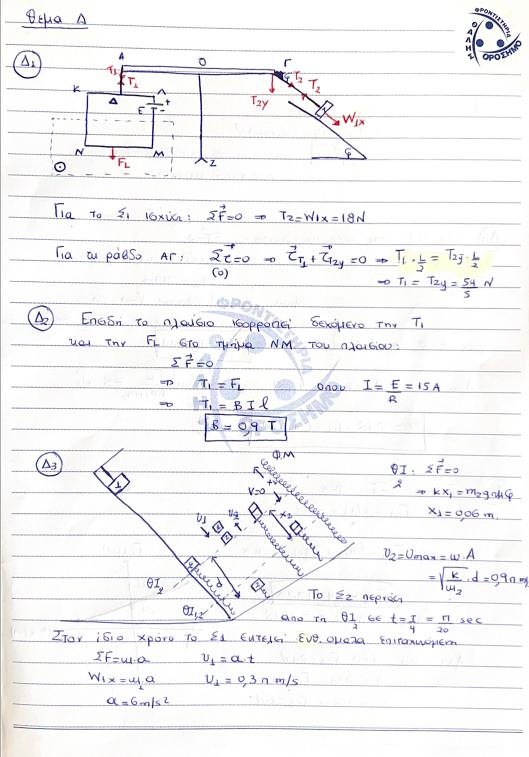 Θέμα Δ
ΦΡΟΝΤΙΣΤΗΡΙΑ
ΟΡΟΣΗΜΟ
Δ1
A O Γ
T1 T1 T2 T2
K Δ Λ T2y
E + - W1x
N FL M Z φ
Για το Σ1 ισχύει: ΣF=0 ⇒ T2=W1x=18N
Για τη ράβδο ΑΓ: Στ=0 ⇒ τT1+τT2y=0 ⇒ T1·L/2=T2y·L/2
(O)
⇒ T1=T2y=54/5 N
Δ2 Επειδή το πλαίσιο ισορροπεί δεχόμενο την T1
και την FL στο τμήμα ΝΜ του πλαισίου:
ΣF=0
⇒ T1=FL όπου I=E/R=15A
⇒ T1=BIl
B=0,9 T
Δ3 Φ.Μ
ΘΙ2 ΣF=0
V=0
⇒ kx1=m2gημφ
x1=0,06 m.
υ1 υ2
υ2=υmax=ω·A
=√k/m2·d=0,9π m/s
ΘΙ2
ΘΙ1,2
Το Σ2 περνάει
από τη ΘΙ2 σε t=T/4=π/20 sec
Στον ίδιο χρόνο το Σ1 εκτελεί ευθ. ομαλα επιταχυνόμενη
ΣF=m·a υ1=a·t
W1x=m1·a υ1=0,3π m/s
a=6m/s²